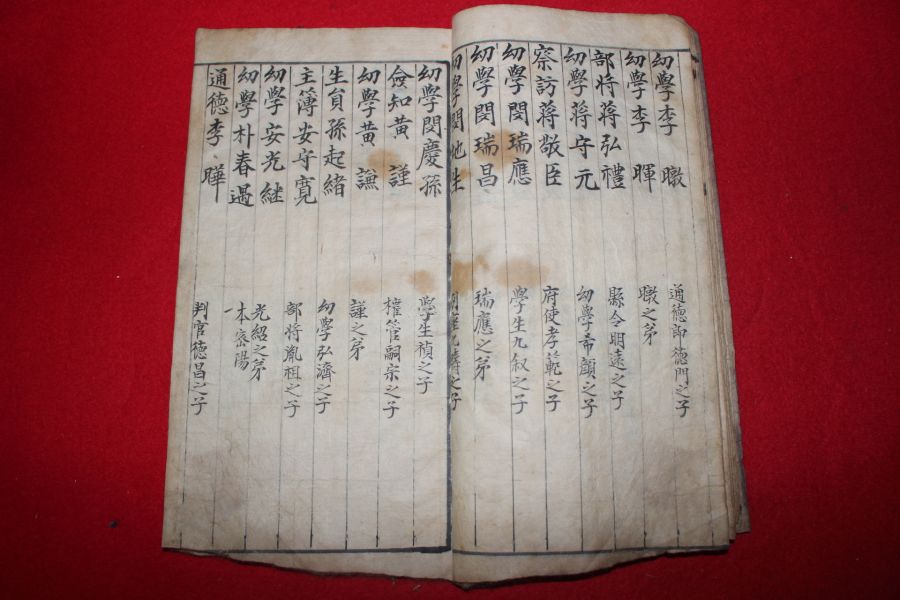 幼學李 暾
通德郎德門之子
幼學李 暉
暾之弟
部將蔣弘禮
縣令明遠之子
幼學蔣守元
幼學希顔之子
察訪蔣敬臣
府使孝範之子
幼學閔瑞應
學生九叙之子
幼學閔瑞昌
瑞應之弟
幼學閔地生
之子
幼學閔慶孫
學生禎之子
僉知黄 謹
權管嗣宗之子
幼學黄 謙
謹之弟
生員孫起緒
幼學弘濟之子
主簿安守寬
部將胤祖之子
幼學安光継
光紹之弟
幼學朴春遇
一本密陽
通德李 曄
判官德昌之子